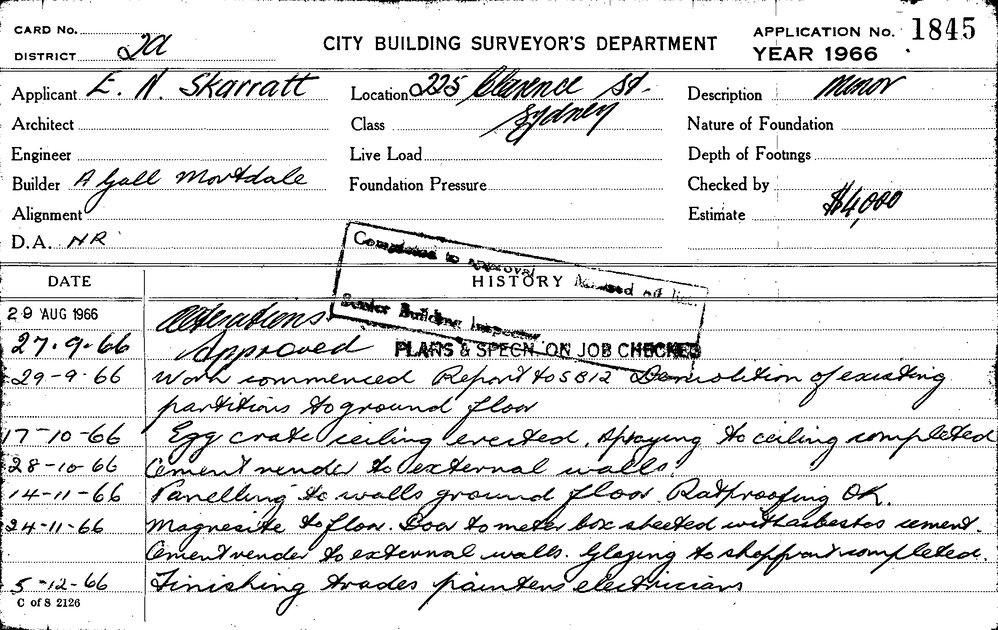 CARD No.
DISTRICT 2a
CITY BUILDING SURVEYOR'S DEPARTMENT
APPLICATION No. 1845
YEAR 1966
Applicant E. N. Skarratt
Location 225 Clarence St.
Sydney
Description Minor
Architect
Class
Nature of Foundation
Engineer
Live Load
Depth of Footings
Builder A Gall Mortdale
Foundation Pressure
Checked by
Alignment
Estimate $4,000
D.A. NR
Completed to approval
Senior Building Inspector
DATE HISTORY
29 AUG 1966 Alterations
27.9.66 Approved PLANS & SPECN. ON JOB CHECKED
29-9-66 Work commenced Report to SB12 Demolition of existing
partitions to ground floor
17-10-66 Egg crate ceiling erected. Spraying to ceiling completed
28-10-66 Cement render to external walls.
14-11-66 Panelling to walls ground floor. Ratproofing OK.
24-11-66 Magnesite to floor. Door to meter box sheeted with asbestos cement.
Cement render to external walls. Glazing to shopfront completed.
5-12-66 Finishing trades painters electricians
C of S 2126